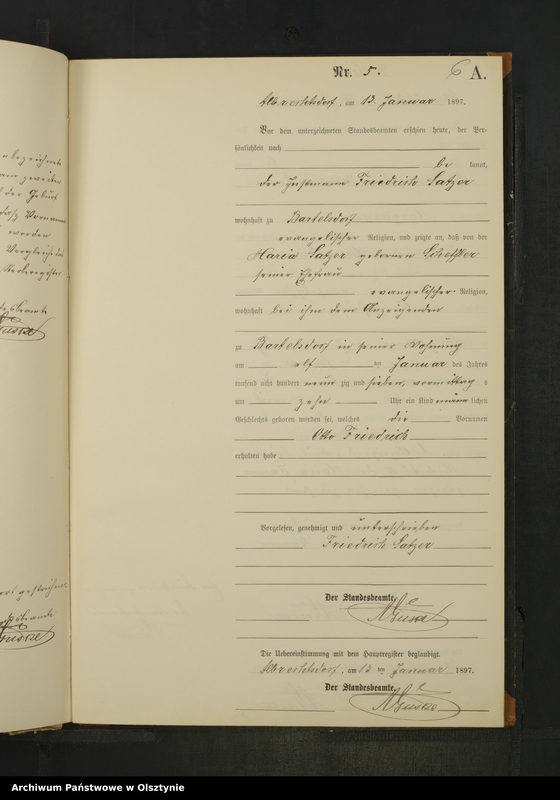 Nr. 5.
6 A.
Albrechtsdorf, am 13. Januar 1897.
Vor dem unterzeichneten Standesbeamten erschien heute, der Per-
sönlichkeit nach
be kannt,
der Instmann Friedrich Satzer
wohnhaft zu Bartelsdorf
evangelischer Religion, und zeigte an, daß von der
Maria Satzer gebornen Scheffler
seiner Ehefrau
evangelischer Religion,
wohnhaft bei ihm dem Anzeigenden
zu Bartelsdorf in seiner Wohnung
am elf ten Januar des Jahres
tausend acht hundert neun zig und sieben, vormittag s
um zehn Uhr ein Kind männ lichen
Geschlechts geboren worden sei, welches die Vornamen
Otto Friedrich
erhalten habe
Vorgelesen, genehmigt und unterschrieben
Friedrich Satzer
Der Standesbeamte.
Die Uebereinstimmung mit dem Hauptregister beglaubigt.
Albrechtsdorf, am 13 ten Januar 1897.
Der Standesbeamte.
Archiwum Państwowe w Olsztynie